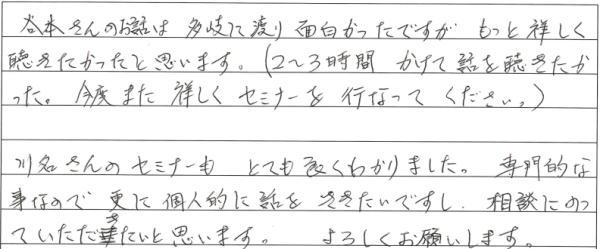 谷本さんのお話は 多岐に渡り 面白かったですが もっと詳しく
聴きたかったと思います。(2〜3時間 かけて話を聴きたか
った。今度また 詳しく セミナーを 行なって ください。)
川名さんのセミナーも とても良くわかりました。 専門的な
事なので 更に 個人的に話を ききたいですし、相談にのっ
ていただきたいと思います。 よろしくお願いします。